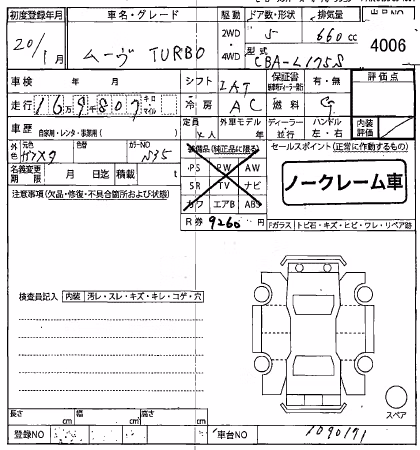 初度登録年月 車名・グレード 駆動 ドア数・形状 排気量 出品NO
20/1月 ムーヴ TURBO 2WD・4WD 5 660cc 4006
型式 CBA-L175S
車検 年 月 シフト IAT 保証書 有・無 評価点
走行 16万9千807キロ・マイル 冷房 AC 燃料 G
車歴 自家用・レンタ・事業用( ) 定員 人 外車モデル 年 ディーラー・並行 ハンドル 左・右 内装評価
外色 元色 色替 カラーNO N35
装備品(純正品に限る) セールスポイント(正常に作動するもの)
名義変更期限 月 日迄 積載 t
PS PW AW
SR TV ナビ
カワ エアB ABS
ノークレーム車
注意事項(欠品・修復・不具合箇所および状態)
R券 9260
Fガラス トビ石・キズ・ヒビ・ワレ・リペア跡
検査員記入 内装 汚レ・スレ・キズ・キレ・コゲ・穴
スペア
長さ cm 幅 cm 高さ cm
登録NO 車台NO 1090171